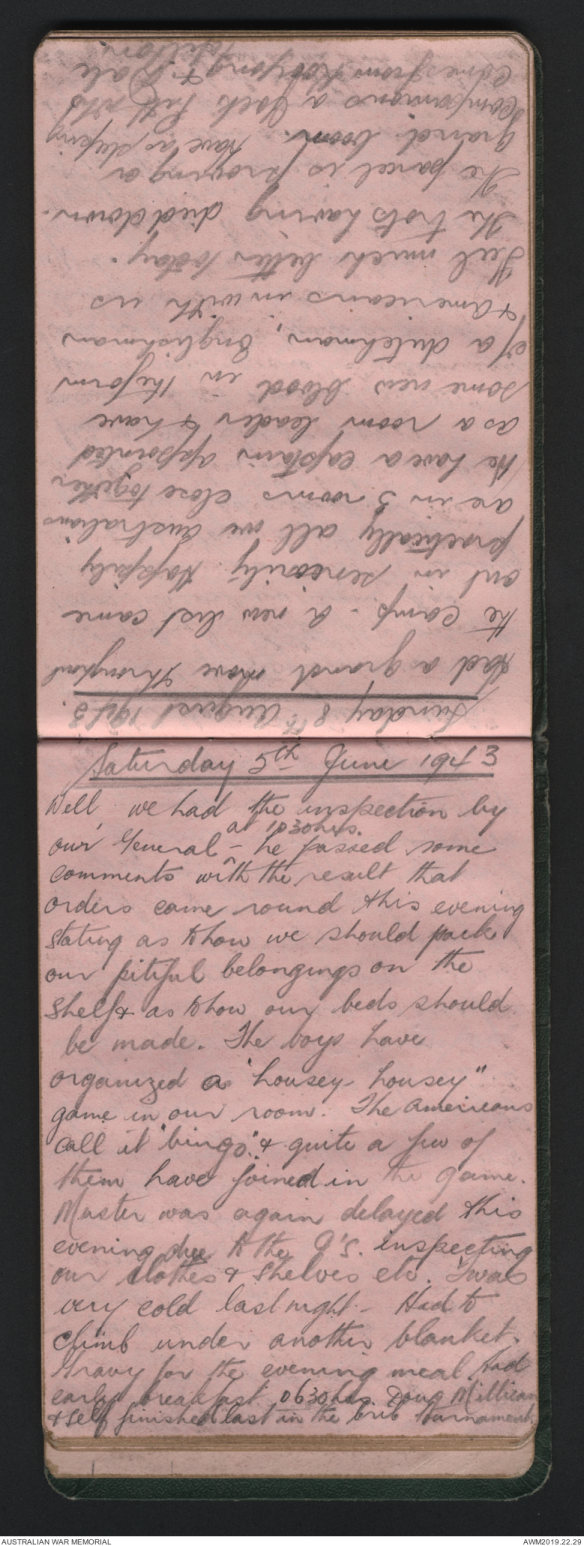 Sunday 8th August 1943.
Had a grand move throughout
the camp - A new list came
out in seniority. Happily
practically all we Australians
are in 3 rooms close together
We have a captain appointed
as a room leader & have
some new blood in the form
of a dutchman, Englishman
& Americans in with us
Feel much better today.
The trots having died down.
The parcel is proving a
grand boon. Have as sleeping
companions a Jack &
comes from & Dale

Saturday 5th June 1943
Well, we had the inspection by
at 1030hrs.
our General - he passed some
comments with the result that
orders came round this evening
stating as to how we should pack
our pitiful belongings on the
shelf & as to how our beds should
be made. The boys have
organized a "housey-housey"
game in our room. The Americans
call it "bingo" & quite a few of
them have joined in the game.
Muster was again delayed this
evening due to the O's. inspecting
our clothes & shelves etc. 'Twas
very cold last night - Had to
climb under another blanket.
Gravy for the evening meal. Had
early breakfast 0630hrs. Doug Millican
& self finished last in the crib tournament
AUSTRALIAN WAR MEMORIAL
AWM2019.22.29